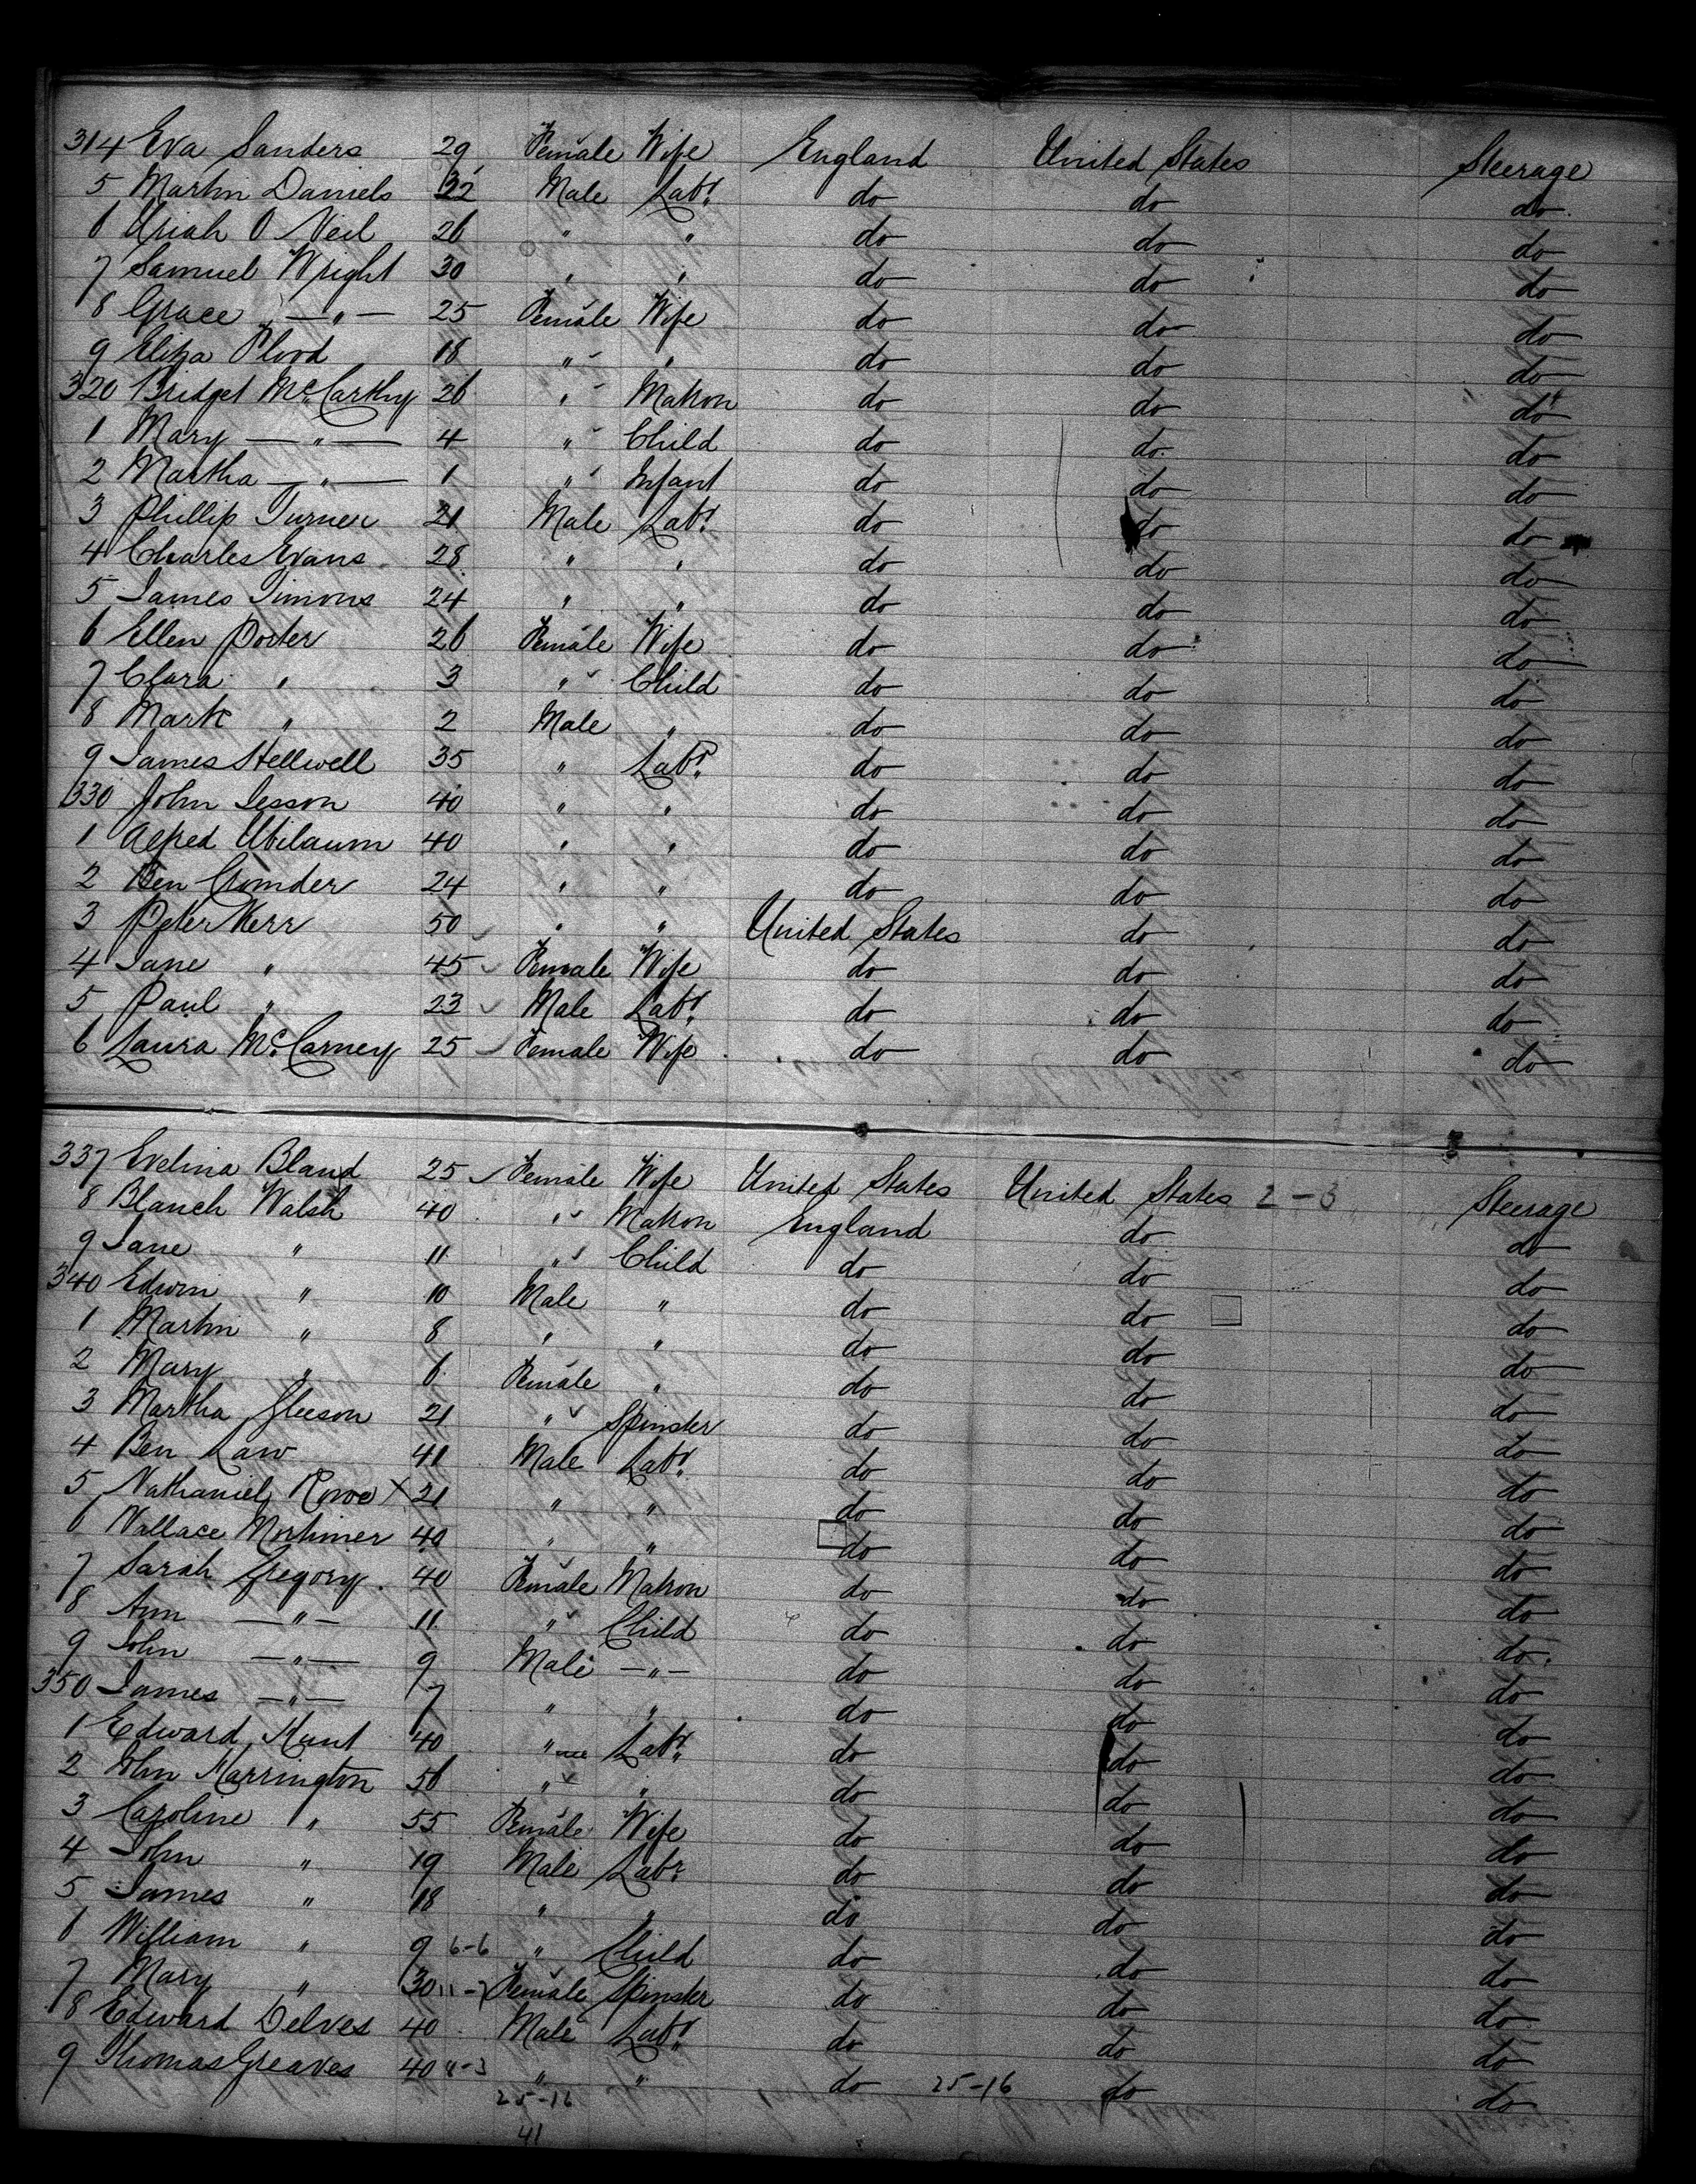 314 Eva Sanders 29 Female Wife England United States Steerage
5 Martin Daniels 32 Male Labr. do do do
6 Uriah O Neil 26 " " do do do
7 Samuel Wright 30 " " do do do
8 Grace — " — 25 Female Wife do do do
9 Eliza Flood 18 " " do do do
320 Bridget McCarthy 26 " Matron do do do
1 Mary — " — 4 " Child do do do
2 Martha — " — 1 " Infant do do do
3 Phillip Turner 21 Male Labr. do do do
4 Charles Evans 28 " " do do do
5 James Timons 24 " " do do do
6 Ellen Porter 26 Female Wife do do do
7 Clara " 3 " Child do do do
8 Mark " 2 Male " do do do
9 James Stellwell 35 " Labr. do do do
330 John Lesson 40 " " do do do
1 Alfred 40 " " do do do
2 Ben 24 " " do do do
3 Peter Kerr 50 " " United States do do
4 Jane " 45 Female Wife do do do
5 Paul " 23 Male Labr. do do do
6 Laura McCarney 25 Female Wife do do do
337 Evelina Bland 25 Female Wife United States United States 2-3 Steerage
8 Blanch Walsh 40 " Matron England do do
9 Jane " 11 " Child do do do
340 Edwin " 10 Male " do do do
1 Martin " 8 " " do do do
2 Mary " 6 Female " do do do
3 Martha Gleeson 21 " Spinster do do do
4 Ben Law 41 Male Labr. do do do
5 Nathaniel Rowe X 21 " " do do do
6 Wallace Mortimer 40 " " do do do
7 Sarah Gregory 40 Female Matron do do do
8 Ann — " — 11 " Child do do do
9 John — " — 9 Male — " — do do do
350 James — " — 7 " " do do do
1 Edward Hunt 40 " Labr. do do do
2 John Harrington 56 " " do do do
3 Caroline " 55 Female Wife do do do
4 John " 19 Male Labr. do do do
5 James " 18 " " do do do
6 William " 9 6-6 " Child do do do
7 Mary " 30 11-7 Female Spinster do do do
8 Edward Delves 40 Male Labr. do do do
9 Thomas Greaves 40 8-3 " " do 25-16 do do
25-16
41